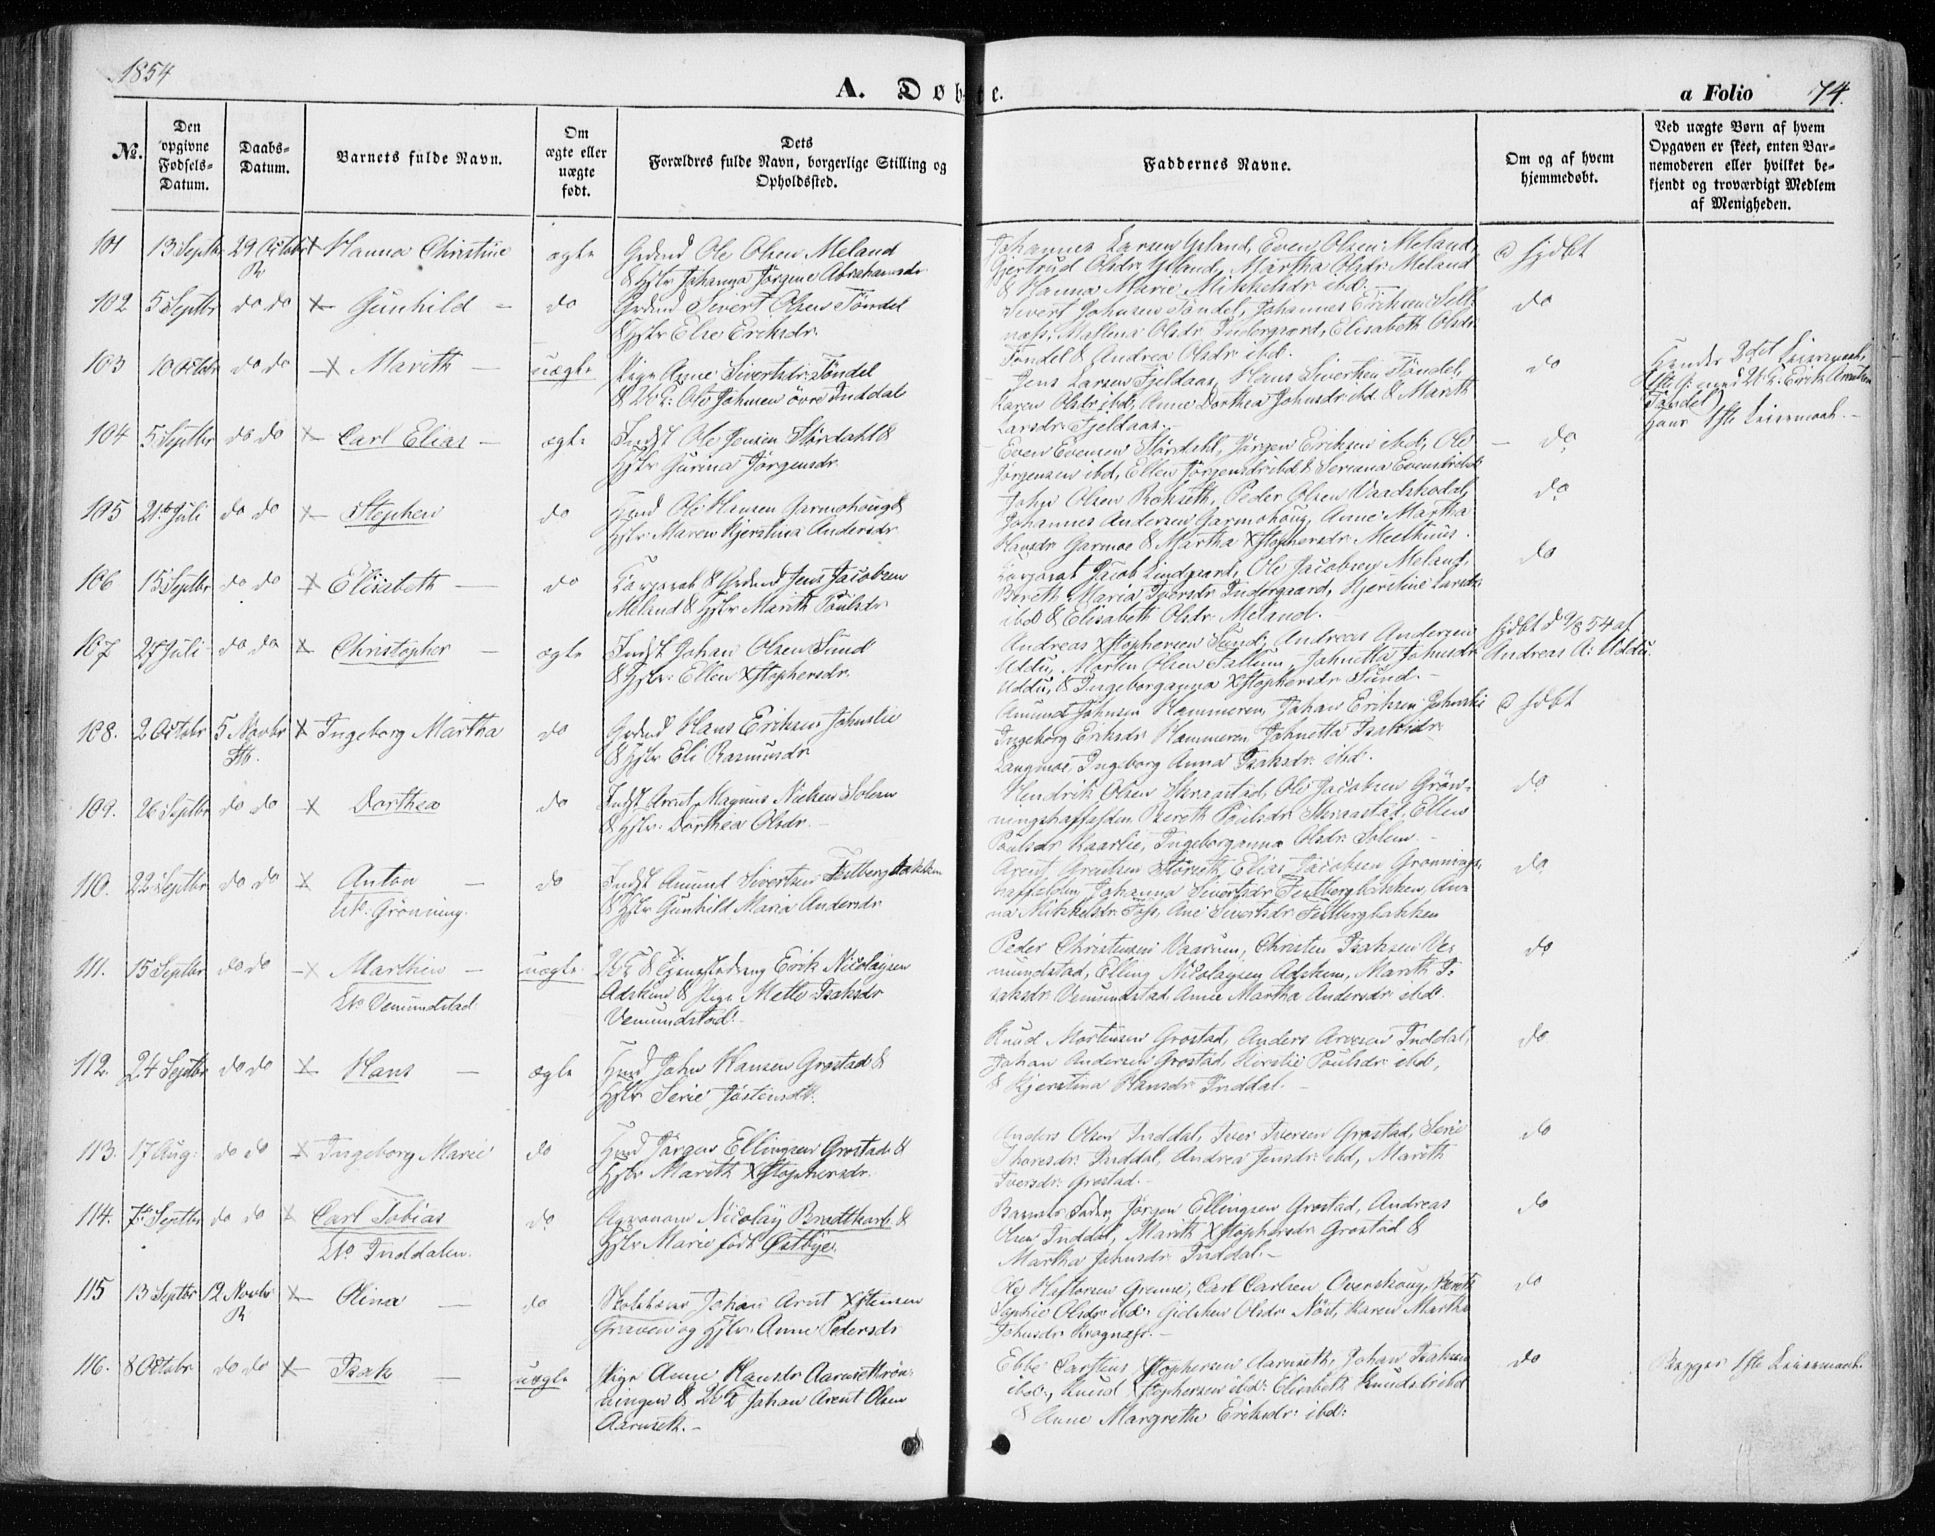 1854
A. Døbte.
a Folio 74.
№.
Den opgivne Fødsels-Datum.
Daabs-Datum.
Barnets fulde Navn.
Om ægte eller uægte født.
Dets Forældres fulde Navn, borgerlige Stilling og Opholdssted.
Faddernes Navne.
Om og af hvem hjemmedøbt.
Ved uægte Børn af hvem Opgaven er skeet, enten Barnemoderen eller hvilket bekjendt og troværdigt Medlem af Menigheden.
101 13 Septbr 29 Octobr R Hanna Christine ægte
Grdmd Ole Olsen Meland
& Hstr Johanna Jørgine Abrahamsdr
Johannes Larsen Even Olsen Meland,
Gjertrud Olsdr Martha Olsdr Meland
& Hanna Marie Mikkelsdr ibd.
102 5 Septbr do do Gunhild do
Grdmd Sivert Olsen Tøndel
& Hstr Else Eriksdr
Sivert Johnsen Tøndel, Johannes Eriksen
Mallena Olsdr Indergaard, Elisabeth Olsdr
Tøndel & Andrea Olsdr ibd.
do
103 10 Octobr do do Marith uægte
Pige Anne Sivertsdr Tøndel
& Ole Johnsen øvre Inddal
Jens Larsen Fjeldaas, Hans Sivertsen Tøndel,
Karen Olsdr ibd, Anne Dorthea Johnsdr ibd & Marith
Larsdr Fjeldaas.
do
Hendes 2det Leiermaal,
Erik Arntsen
Tøndel)
Hans 1ste Leiermaal.
104 5 Septbr do do Carl Elias ægte
Indst Ole Jensen Størdahl &
Hstr Gurina Jørgensdr
Even Evensen Størdahl, Jørgen Eriksen ibd, Ole
Jørgensen ibd, Ellen Jørgensdr ibd & Seriana Evensdr ibd
do
105 21 Juli do do Stephen do
Ole Hansen Garmohoug &
Hstr Maren Kjerstina Andersdr
John Olsen Rokseth, Peder Olsen Vaadskodal,
Johannes Andersen Garmohoug, Anne Martha
Hansdr Garmoe & Martha Xstophersdr
do
106 15 Septbr do do Elisabeth do
Corporal & Grdmd Jens Jacobsen
Meland & Hstr Marith Poulsdr
Corporal Jacob Lindgaard, Ole Jacobsen Meland,
Bereth Maria Iversdr Indergaard, Kjerstine Larsdr
ibd & Elisabeth Olsdr Meland.
do
107 24 Juli do do Christopher ægte
Indst Johan Olsen Sund
& Hstr Ellen Xstophersdr
Andreas Xstophersen Sund, Andreas Andersen
Uddu, Morten Olsen Johnetta Johnsdr
Uddu, & Ingeborganna Xstophersdr Sund.
hjdbt 54 af
Andreas A. Uddu.
108. 2 Octobr 5 Novbr Ingeborg Martha do
Grdmd Hans Eriksen Johnslie
& Hstr Eli Rasmusdr
Amund Johnsen Hammeren, Johan Eriksen Johnslie
Ingeborg Eriksdr Hammeren Johnetta Isaksdr
Langmoe, Ingeborg Anna Isaksdr ibd.
109. 26 Septbr do do Dorthea do
Indst Arnt Magnus Nielsen Solem
& Hstr: Dorthea Olsdr.
Hendrik Olsen Skraastad, Ole Jacobsen Grøn-
Bereth Poulsdr Skraastad, Ellen
Poulsdr Kaarlie, Ingeborganna Olsdr Solem
do
110. 22 Septbr do do Anton do
Grønning.
Indst Amund Sivertsen Fuldbergbakken
& Hstr Gunhild Maria Andersdr
Arent Arentsen Størseth, Elias Jacobsen Grønnings-
Johanna Sivertsdr Anna
Mikkelsdr Foss, Ane Sivertsdr
do
111. 15 Septbr do do Marthin uægte
Vemundstad
Erik Nicolaysen
Adskim & Pige Mette Isaksdr
Vemundstad.
Peder Christensen Vaarum, Christen Isaksen Ve-
mundstad, Elling Nicolaysen Adskim, Marith I-
saksdr Vemundstad Anne Martha Andersdr ibd.
do
112. 24 Septbr do do Hans ægte
John Hansen Grostad &
Hstr Serie Jostensdr.
Knud Mortensen Grostad, Anders Arnesen Inddal,
Johan Andersen Grostad, Poulsdr ibd,
& Kjerstina Hansdr Inddal.
do
113. 17 Aug do do Ingeborg Marie do
Jørgen Ellingsen Grostad &
Hstr Marith Xstophersdr.
Anders Olsen Inddal, Iver Iversen Grostad, Serie
Thoresdr Inddal, Andrea Jensdr ibd, Marith
Iversdr Grostad.
do
114. 7 Septbr do do Carl Tobias do
Inddalen.
Agronom Nicolay Brodtkorb &
Hstr Marie født Østbye.
Barnets Fader, Jørgen Ellingsen Grostad, Andreas
Olsen Inddal, Marith Xstophersdr Grostad &
Martha Johnsdr Inddal.
do
115 13 Septbr 12 Novbr R Olina do
Skoleholder Johan Arnt Xstensen
Graven og Hstr Anne Pedersdr
Carl Carlsen Overskoug, Bereth
Sophie Olsdr ibd. Gidsken Olsdr Nøst, Karen Martha
Johnsdr Krognæss.
do
116. 8 Octobr do do Isak uægte
Pige Anne Hansdr Aarnsethrøn-
ningen & Johan Arent Olsen
Aarnseth.
Ebbe Carsten Xstophersen Aarnseth, Johan Isaksen
ibd, Knud Xstophersen ibd: Elisabeth Knudsdr ibd
& Anne Margrethe Eriksdr ibd.
do
Begges 1ste Leiermaal.